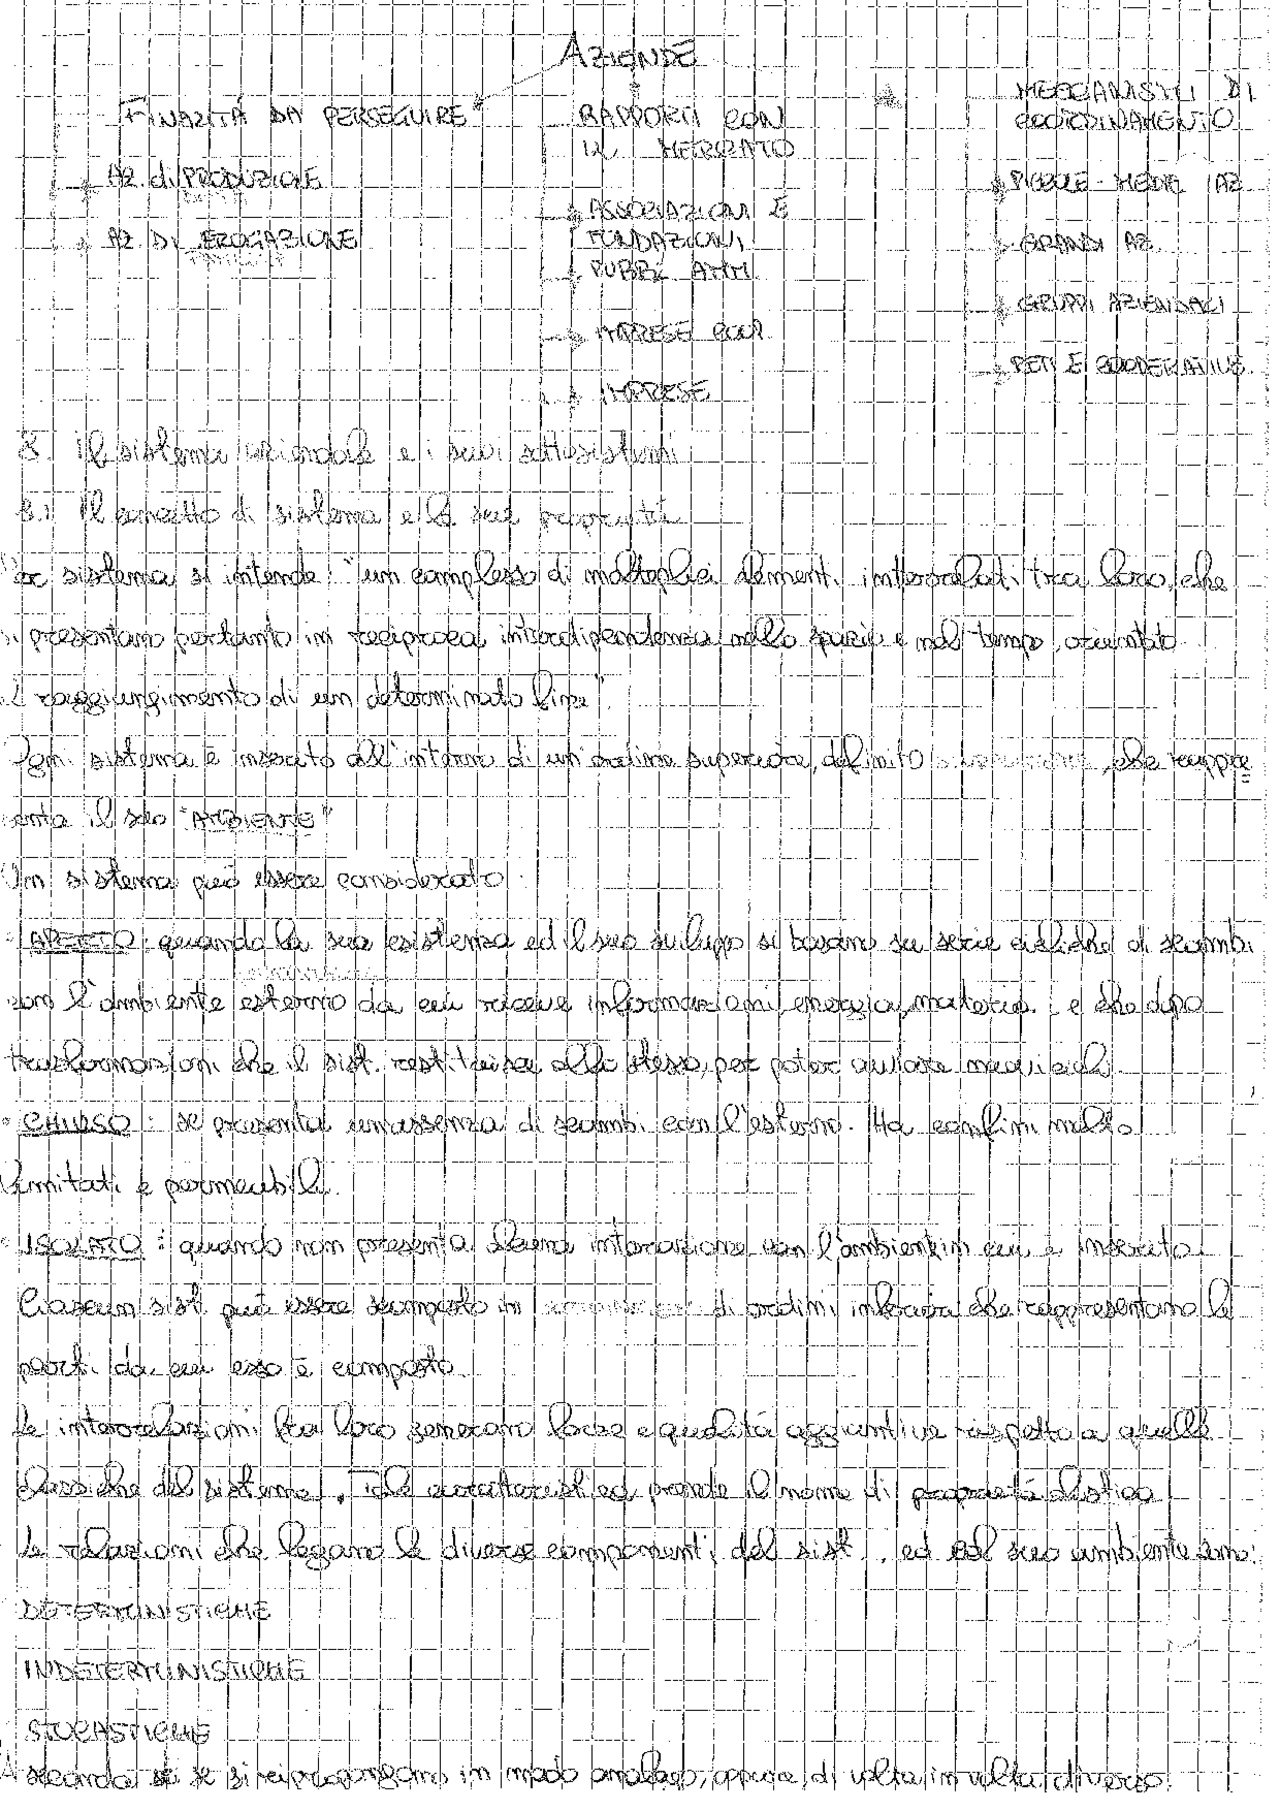 AZIENDE
FINALITÁ DA PERSEGUIRE
RAPPORTI CON
IL MERCATO
MECCANISMI DI
COORDINAMENTO
AZ. di PRODUZIONE
AZ. DI EROGAZIONE
ASSOCIAZIONI E
FONDAZIONI,
PUBBL AMM.
IMPRESE
IMPRESE
PICCOLE - MEDIE AZ
GRANDI AZ.
GRUPPI AZIENDALI
RETI E COOPERATIVE
8. Il sistema aziendale e i suoi sottosistemi
8.1 Il concetto di sistema e le sue proprietá
Per sistema si intende: "un complesso di molteplici elementi, interrelati tra loro, che
si presentano pertanto in reciproca interdipendenza nello spazio e nel tempo, orientato
al raggiungimento di un determinato fine".
Ogni sistema è inserito all'interno di un ordine superiore, definito , che rappre
senta il suo "AMBIENTE"
Un sistema può essere considerato:
APERTO: quando la sua esistenza ed il suo sviluppo si basano su serie cicliche di scambi
con l'ambiente esterno da cui riceve informazioni, energia, materia. e che dopo
trasformazioni che il sist. restituisce allo stesso, per poter avviare nuovi cicli.
CHIUSO: se presenta un'assenza di scambi con l'esterno. Ha confini molto
limitati e permeabili.
ISOLATO: quando non presenta alcuna interazione con l'ambiente in cui è inserito
Ciascun sist. può essere scomposto in di ordini inferiori che rappresentano le
parti da cui esso è composto.
Le interrelazioni tra loro generano forze e qualitá aggiuntive rispetto a quelle
classiche del sistema. Tale caratteristica prende il nome di proprietá olistica
Le relazioni che legano le diverse componenti del sist., ed al suo ambiente sono:
DETERMINISTICHE
INDETERMINISTICHE
STOCASTICHE
A seconda se si ripropongono in modo analogo, oppure, di volta in volta, diverso.